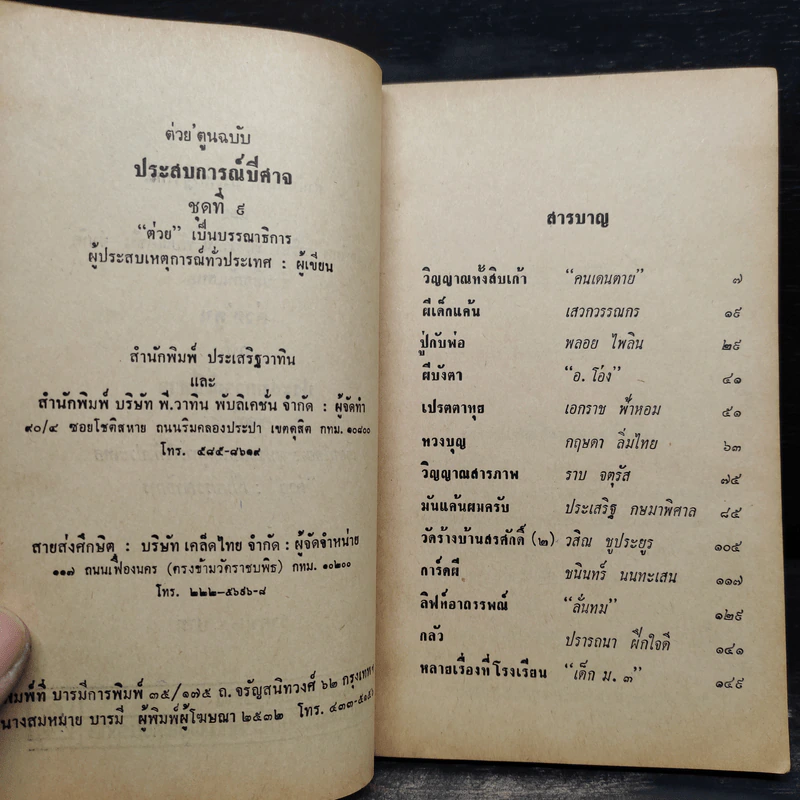 ต่วย'ตูนฉบับ
ประสบการณ์ปีศาจ
ชุดที่ ๙
"ต่วย" เป็นบรรณาธิการ
ผู้ประสบเหตุการณ์ทั่วประเทศ : ผู้เขียน
สำนักพิมพ์ ประเสริฐวาทิน
และ
สำนักพิมพ์ บริษัท พี.วาทิน พับลิเคชั่น จำกัด : ผู้จัดทำ
๙๐/๔ ซอยโชติสหาย ถนนริมคลองประปา เขตดุสิต กทม. ๑๐๘๐๐
โทร. ๕๘๕-๘๖๑๙
สายส่งศึกษิต : บริษัท เคล็ดไทย จำกัด : ผู้จัดจำหน่าย
๑๑๗ ถนนเฟื่องนคร (ตรงข้ามวัดราชบพิธ) กทม. ๑๐๒๐๐
โทร. ๒๒๒-๕๖๙๖-๘
พิมพ์ที่ บารมีการพิมพ์ ๓๕/๑๗๕ ถ.จรัญสนิทวงศ์ ๖๒ กรุงเทพ
นางสมหมาย บารมี ผู้พิมพ์ผู้โฆษณา ๒๕๓๒ โทร.
สารบาญ
วิญญาณทั้งสิบเก้า "คนเดนตาย" ๗
ผีเด็กแค้น เสวกวรรณกร ๑๙
ปู่กับพ่อ พลอย ไพลิน ๒๙
ผีบังตา "อ. โอ่ง" ๔๑
เปรตตาทุย เอกราช ฟ้าหอม ๕๑
หวงบุญ กฤษดา ลิ่มไทย ๖๓
วิญญาณสารภาพ ราบ จตุรัส ๗๕
มันแค้นผมครับ ประเสริฐ กษมาพิศาล ๘๕
วัดร้างบ้านสรศักดิ์ (๒) วสิณ ชูประยูร ๑๐๕
การ์ดผี ชนินทร์ นนทะเสน ๑๑๗
ลิฟท์อาถรรพณ์ "ลั่นทม" ๑๒๙
กลัว ปรารถนา ฝึกใจดี ๑๔๑
หลายเรื่องที่โรงเรียน "เด็ก ม. ๓" ๑๔๙